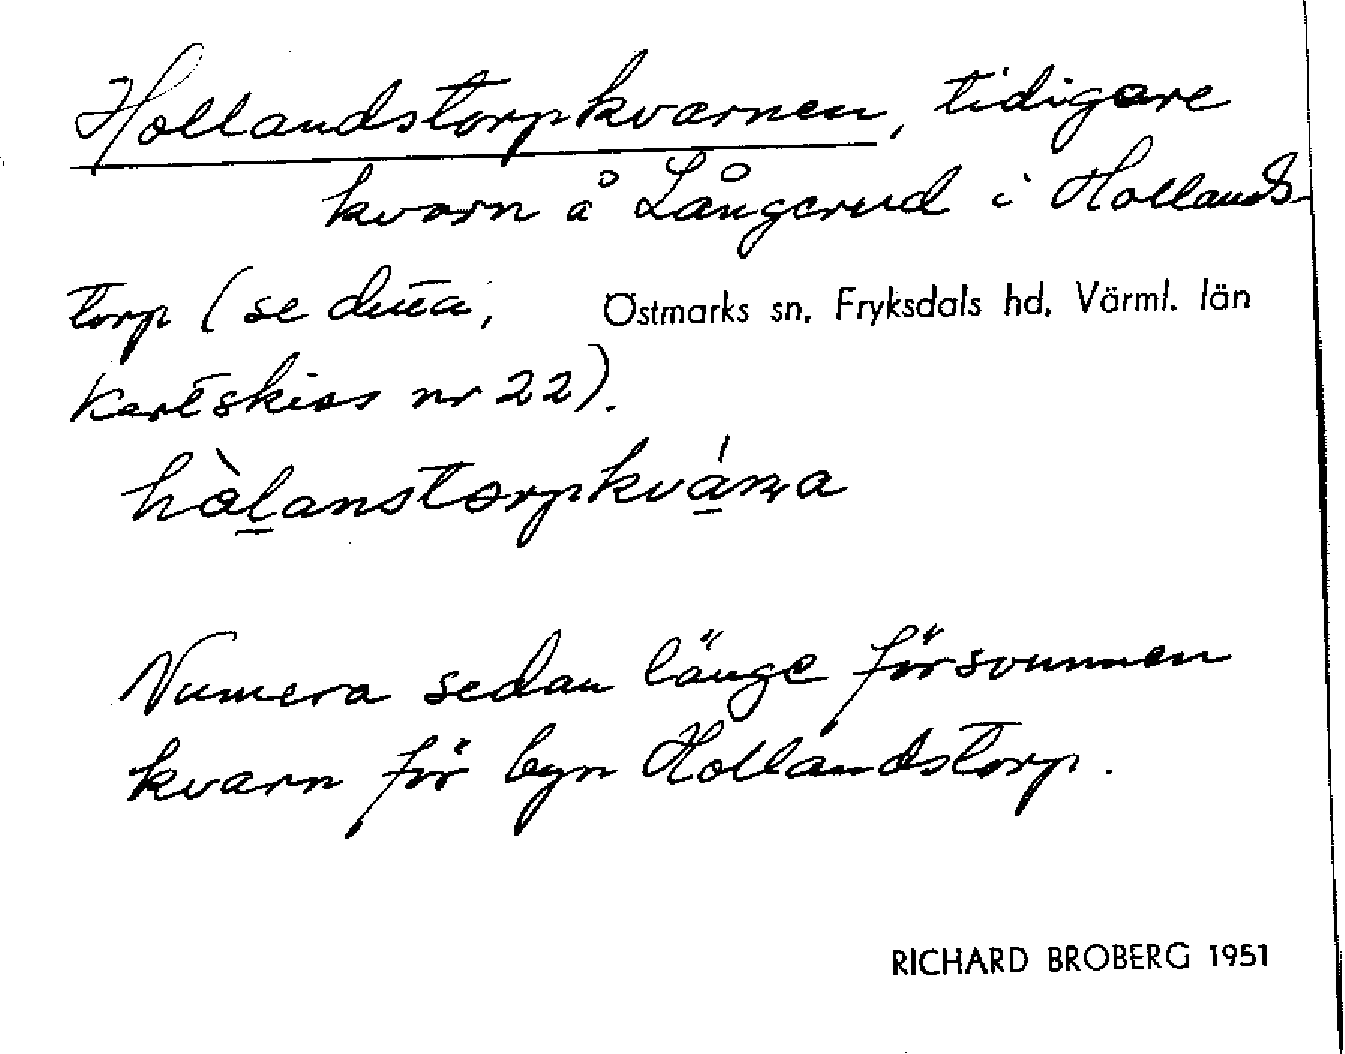 Hollandstorpkvarnen, tidigare
kvarn å Långerud i Hollands-
torp (se detta,
Östmarks sn. Fryksdals hd. Värml. län
kartskiss nr 22).
hòl̠anstorpkvá̠ɳa
Numera sedan länge försvunnen
kvarn för byn Hollandstorp.
RICHARD BROBERG 1951